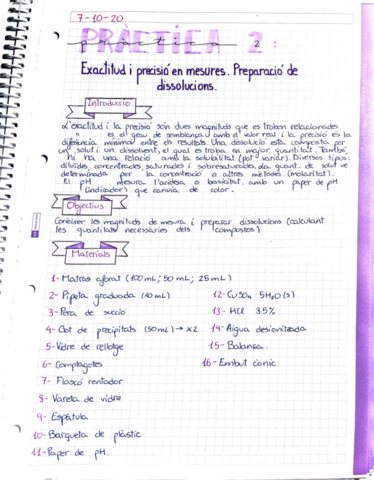 7-10-20
PRÀCTICA 2:
pràctica 2
Exactitud i precisió en mesures. Preparació de
dissolucions.
Introducció
L'exactitud i la precisió són dues magnituds que es troben relacionades
" es el grau de semblança amb el valor real i la precisió és la
diferència minima entre els resultats. Una dissolució està composta per
un solut i un dissolvent, el qual es troba en major quantitat. També,
hi ha una relació amb la solubilitat (pot variar). Diversos tipus:
diluides, concentrades, saturades i sobresaturades. La quant. de solut ve
determinada per la concentració o altres mètodes (molaritat).
El pH mesura l'acidesa o basicitat amb un paper de pH
(indicador) que canvia de color.
Objectius
Conèixer les magnituds de mesura i preparar dissolucions (calculant
les quantitats necessàries dels compostos)
Materials
1- Matràs aforat (100 mL; 50 mL; 25 mL)
2- Pipeta graduada (10 mL)
12- CuSO4 · 5H2O (s)
3- Pera de succió
13- HCl 35%
4- Got de precipitats (50 mL) → x2
14- Aigua desionitzada
5- Vidre de rellotge
15- Balança.
6- Comptagotes
16- Embut cònic
7- Flascó rentador
8- Vareta de vidre
9- Espàtula
10- Barqueta de plàstic
11- Paper de pH.